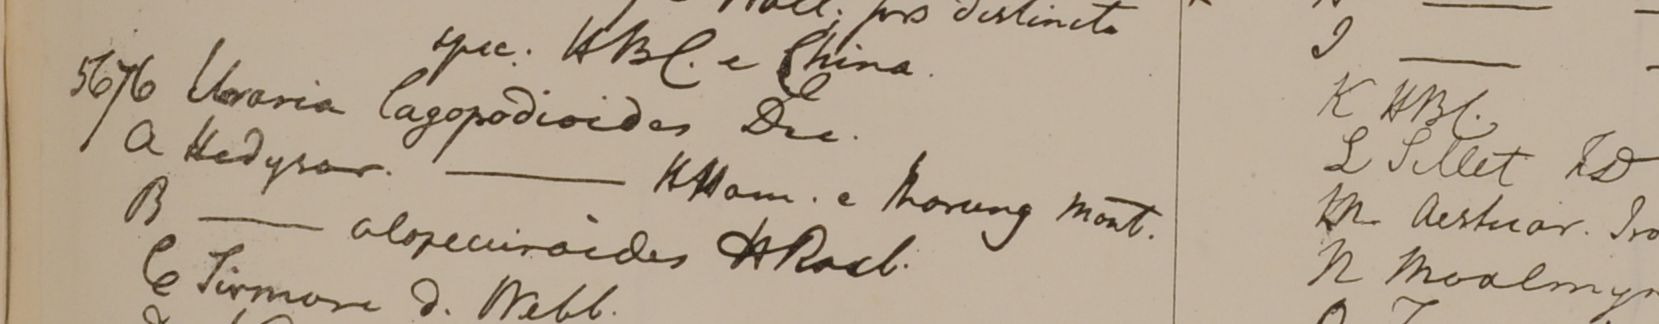 Wall. pro distincta
spec. HBC. e China.
5676 Uraria lagopodioides Dec.
A Hedysar. —— HHam. e Morung mont.
B —— alopecuroides HRoxb.
C Sirmore d. Webb.
J ——
K HBC.
L Sillet FD
M Aestuar.
N Moalmyn